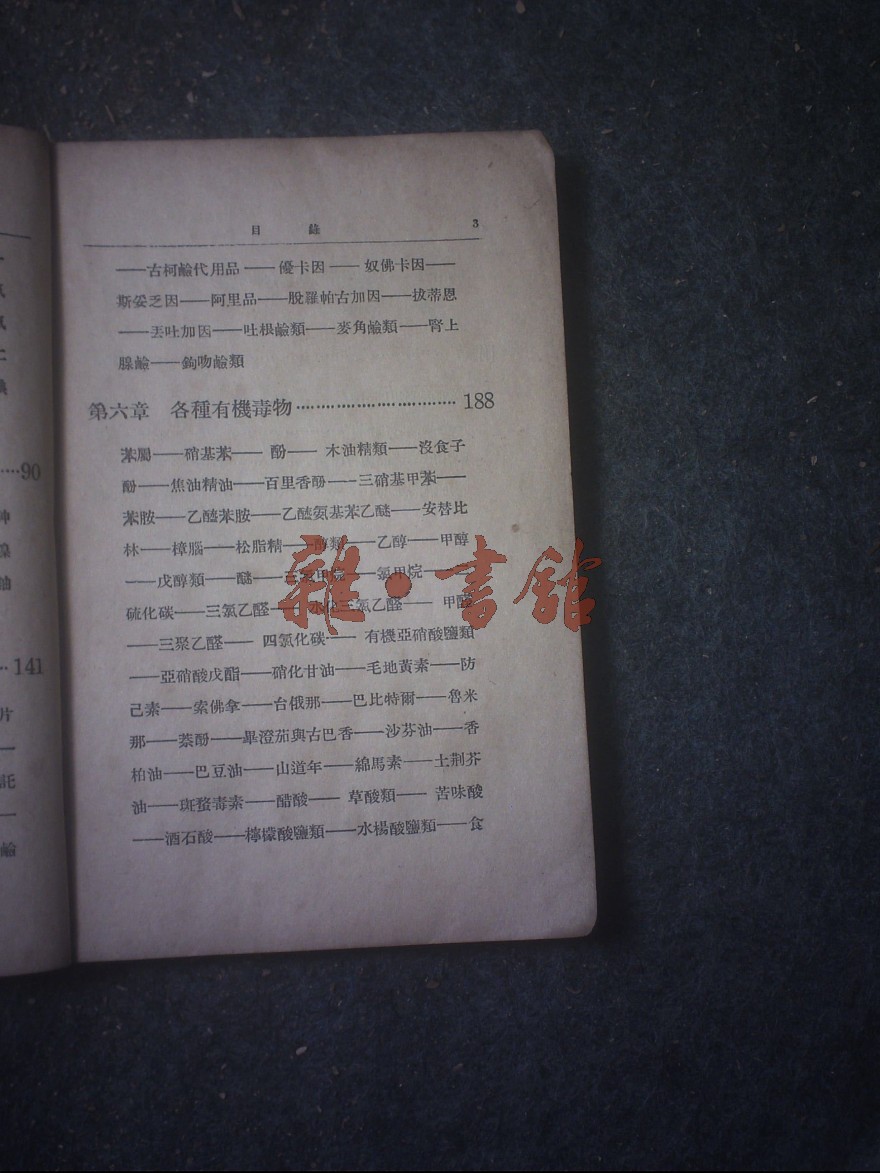 目錄 3
——古柯鹼代用品——優卡因——奴佛卡因——
斯妥乏因——阿里品——脫羅帕古加因——拔蒂恩
——丟吐加因——吐根鹼類——麥角鹼類——腎上
腺鹼——鉤吻鹼類
第六章 各種有機毒物 ································ 188
苯屬——硝基苯——酚——木油精類——沒食子
酚——焦油精油——百里香酚——三硝基甲苯——
苯胺——乙醯苯胺——乙醯氨基苯乙醚——安替比
林——樟腦——松脂精——醇類——乙醇——甲醇
——戊醇類——醚——三氯甲烷——氯甲烷——
硫化碳——三氯乙醛——水化三氯乙醛——甲醛
——三聚乙醛——四氯化碳——有機亞硝酸鹽類
——亞硝酸戊酯——硝化甘油——毛地黃素——防
己素——索佛拿——台俄那——巴比特爾——魯米
那——萘酚——畢澄茄與古巴香——沙芬油——香
柏油——巴豆油——山道年——綿馬素——土荆芥
油——斑蝥毒素——醋酸——草酸類——苦味酸
——酒石酸——檸檬酸鹽類——水楊酸鹽類——食
雜·書館
····90
··141
片
託
油
鹼